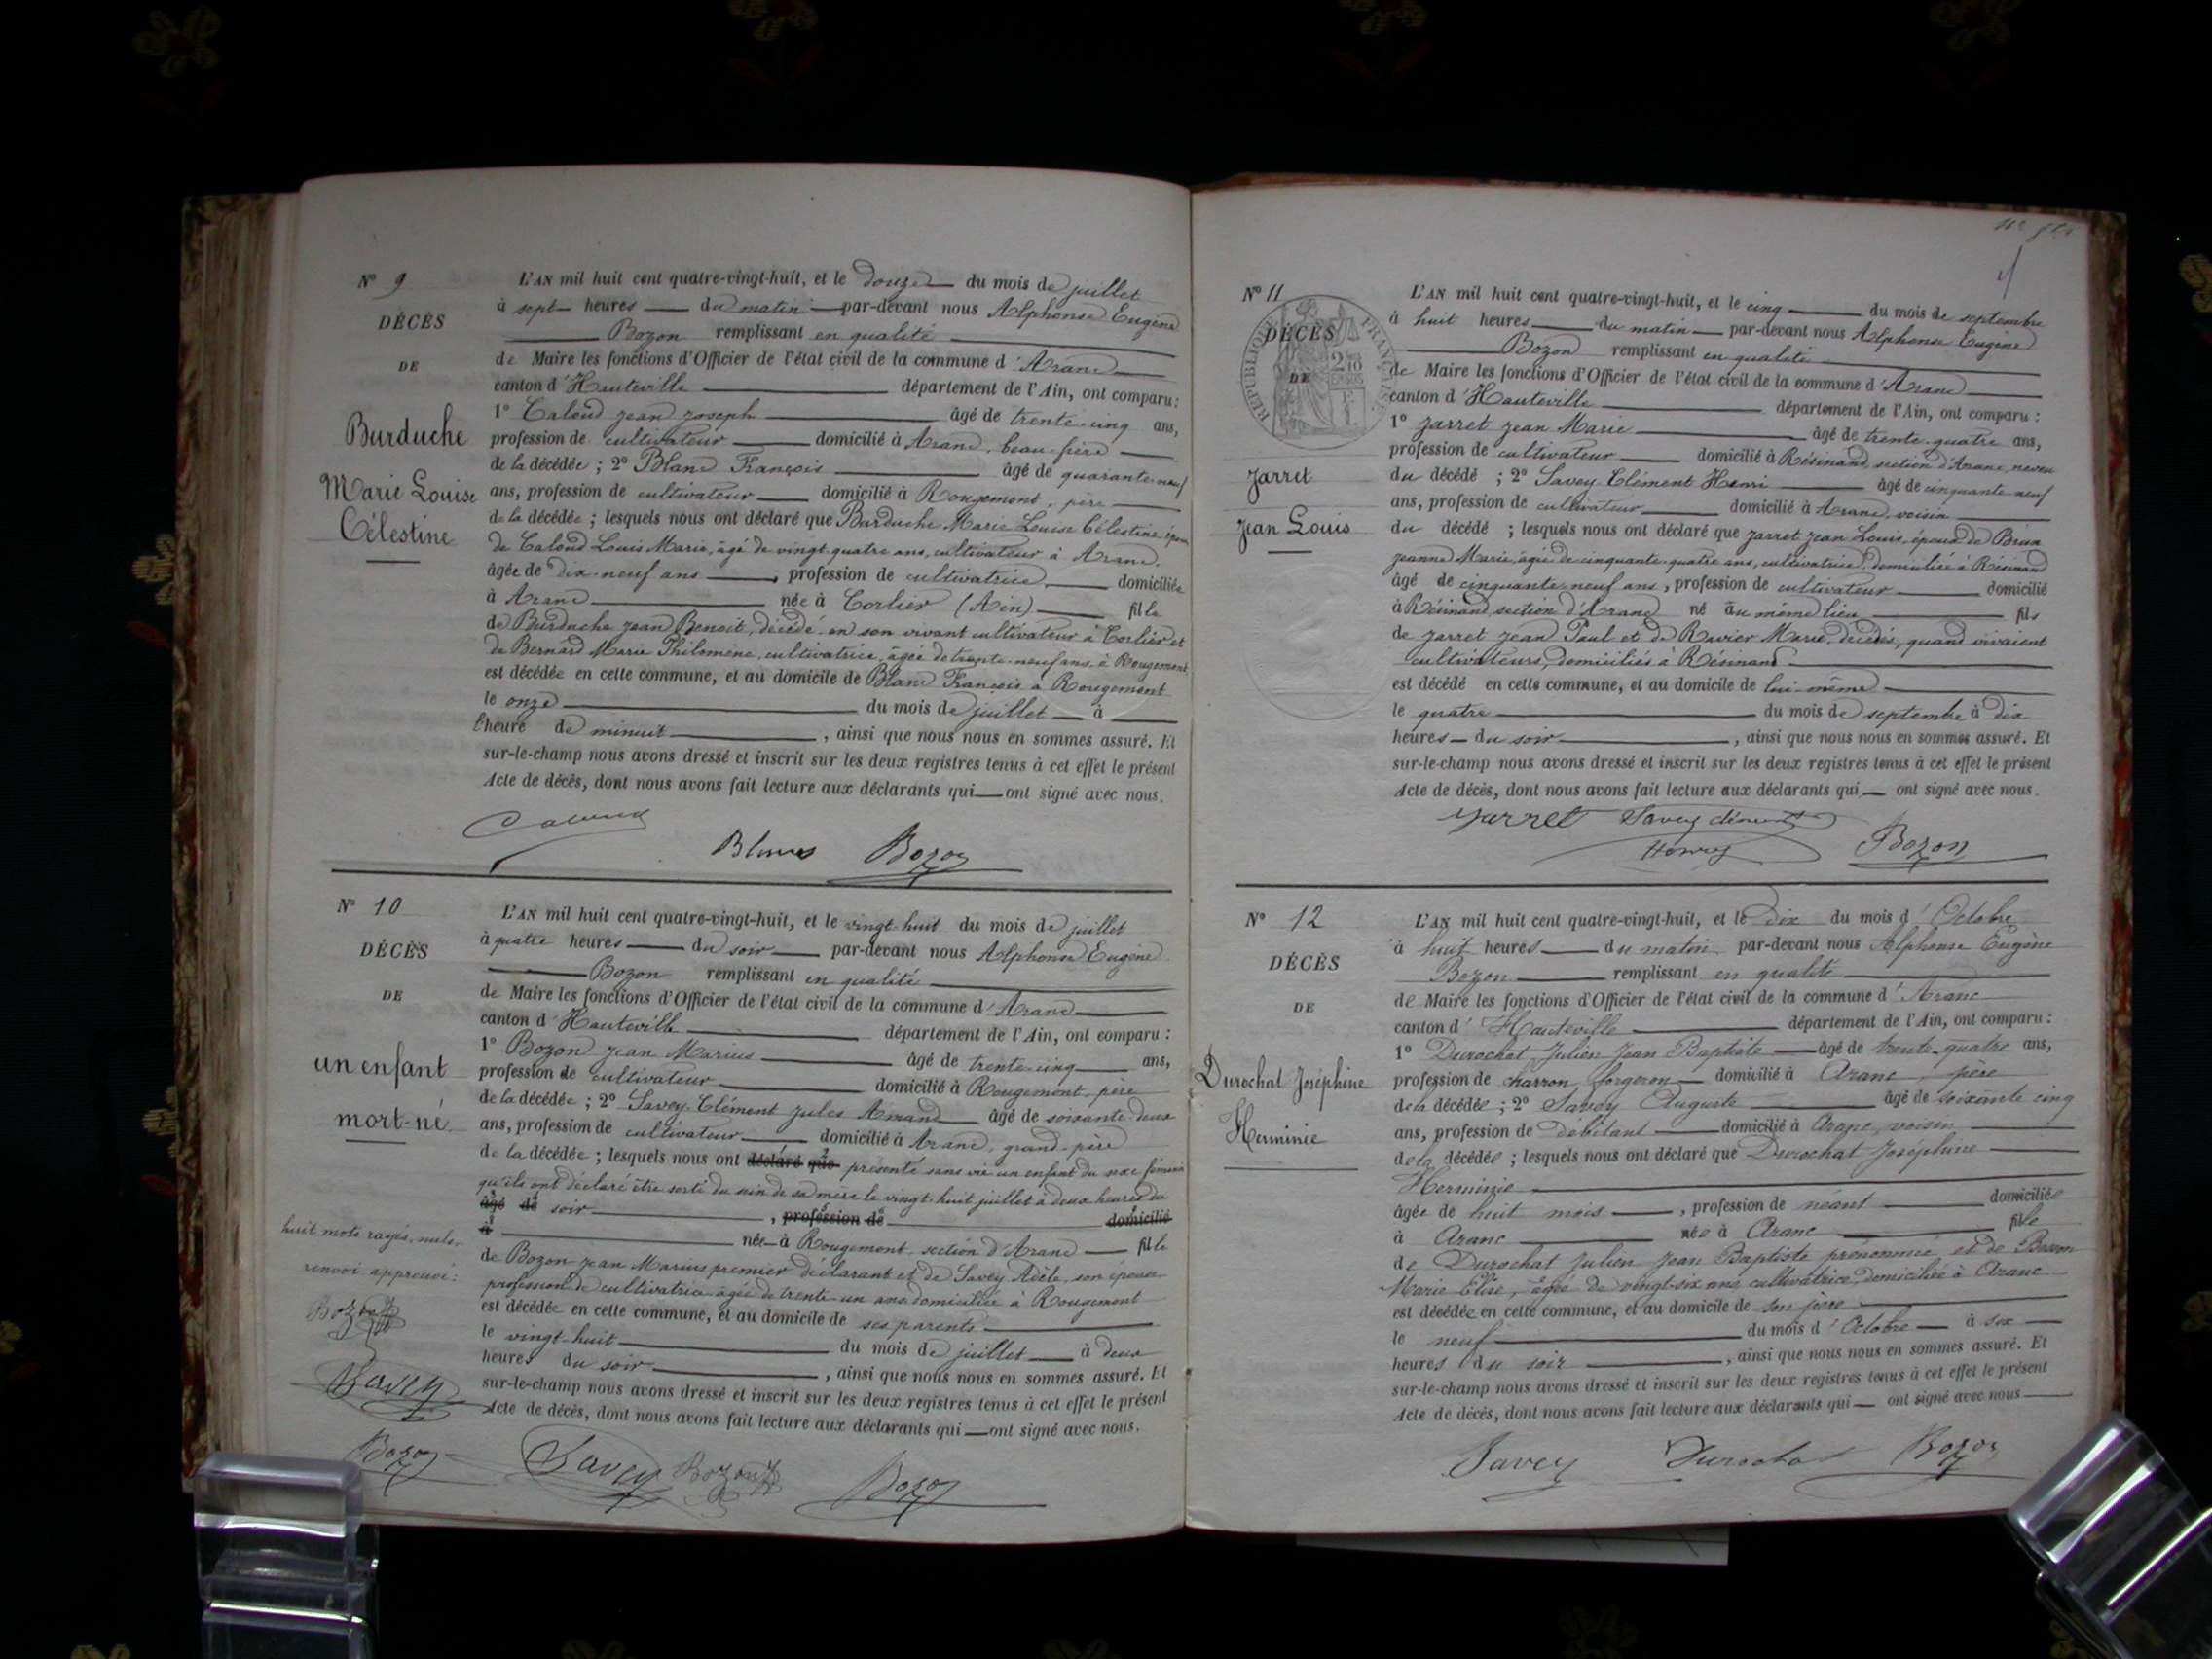 N° 9
DÉCÈS
DE
Burduche
Marie Louise
Célestine
L'AN mil huit cent quatre-vingt-huit, et le douze du mois de juillet
à sept heures du matin par-devant nous Alphonse Eugène
Bozon remplissant en qualité
de Maire les fonctions d'Officier de l'état civil de la commune d'Aranc
canton d'Hauteville département de l'Ain, ont comparu :
1° Caloud Jean Joseph âgé de trente-cinq ans,
profession de cultivateur domicilié à Aranc, beau-frère
de la décédée ; 2° Blanc François âgé de quarante-neuf
ans, profession de cultivateur domicilié à Rougemont, père
de la décédée ; lesquels nous ont déclaré que Burduche Marie Louise Célestine épouse
de Caloud Louis Marie, âgé de vingt quatre ans, cultivateur à Aranc,
âgée de dix-neuf ans, profession de cultivatrice, domiciliée
à Aranc née à Corlier (Ain) fille
de Burduche Jean Benoit, décédé, en son vivant cultivateur à Corlier et
de Bernard Marie Philomène, cultivatrice, âgée de trente-neuf ans, à Rougemont
est décédée en cette commune, et au domicile de Blanc François à Rougemont
le onze du mois de juillet à
l'heure de minuit, ainsi que nous nous en sommes assuré. Et
sur-le-champ nous avons dressé et inscrit sur les deux registres tenus à cet effet le présent
Acte de décès, dont nous avons fait lecture aux déclarants qui ont signé avec nous.
Caloud
Blanc Bozon
N° 10
DÉCÈS
DE
un enfant
mort-né
huit mots rayés, nuls,
renvoi approuvé :
Bozon
Savey
Bozon
L'AN mil huit cent quatre-vingt-huit, et le vingt-huit du mois de juillet
à quatre heures du soir par-devant nous Alphonse Eugène
Bozon remplissant en qualité
de Maire les fonctions d'Officier de l'état civil de la commune d'Aranc
canton d'Hauteville département de l'Ain, ont comparu :
1° Bozon Jean Marius âgé de trente-cinq ans,
profession de cultivateur domicilié à Rougemont, père
de la décédée ; 2° Savey-Clément Jules Amand âgé de soixante-deux
ans, profession de cultivateur domicilié à Aranc, grand-père
de la décédée ; lesquels nous ont déclaré que présenté sans vie un enfant du sexe féminin
qu'ils ont déclaré être sorti du sein de sa mère le vingt-huit juillet à deux heures du
âgé de soir, profession de domicilié
à née à Rougemont, section d'Aranc fille
de Bozon Jean Marius premier déclarant et de Savey Adèle, son épouse
profession de cultivatrice âgée de trente-un ans domiciliée à Rougemont
est décédée en cette commune, et au domicile de ses parents
le vingt-huit du mois de juillet à deux
heures du soir, ainsi que nous nous en sommes assuré. Et
sur-le-champ nous avons dressé et inscrit sur les deux registres tenus à cet effet le présent
Acte de décès, dont nous avons fait lecture aux déclarants qui ont signé avec nous.
Savey Bozon Bozon
N° 11
DÉCÈS
DE
RÉPUBLIQUE FRANÇAISE
Jarret
Jean Louis
L'AN mil huit cent quatre-vingt-huit, et le cinq du mois de septembre
à huit heures du matin par-devant nous Alphonse Eugène
Bozon remplissant en qualité
de Maire les fonctions d'Officier de l'état civil de la commune d'Aranc
canton d'Hauteville département de l'Ain, ont comparu :
1° Jarret Jean Marie âgé de trente-quatre ans,
profession de cultivateur domicilié à Résinand, section d'Aranc, neveu
du décédé ; 2° Savey Clément Henri âgé de cinquante-neuf
ans, profession de cultivateur domicilié à Aranc, voisin
du décédé ; lesquels nous ont déclaré que Jarret Jean Louis, époux de Brun
Jeanne Marie, âgée de cinquante-quatre ans, cultivatrice, domiciliée à Résinand
âgé de cinquante-neuf ans, profession de cultivateur domicilié
à Résinand, section d'Aranc né au même lieu fils
de Jarret Jean Paul et de Ravier Marie, décédés, quand vivaient
cultivateurs, domiciliés à Résinand
est décédé en cette commune, et au domicile de lui-même
le quatre du mois de septembre à dix
heures du soir, ainsi que nous nous en sommes assuré. Et
sur-le-champ nous avons dressé et inscrit sur les deux registres tenus à cet effet le présent
Acte de décès, dont nous avons fait lecture aux déclarants qui ont signé avec nous.
Jarret Savey clément
Henry Bozon
N° 12
DÉCÈS
DE
Durochat Joséphine
Herminie
L'AN mil huit cent quatre-vingt-huit, et le dix du mois d'Octobre
à huit heures du matin par-devant nous Alphonse Eugène
Bozon remplissant en qualité
de Maire les fonctions d'Officier de l'état civil de la commune d'Aranc
canton d'Hauteville département de l'Ain, ont comparu :
1° Durochat Julien Jean Baptiste âgé de trente-quatre ans,
profession de charron, forgeron domicilié à Aranc, père
de la décédée ; 2° Savey Auguste âgé de soixante cinq
ans, profession de débitant domicilié à Aranc, voisin
de la décédée ; lesquels nous ont déclaré que Durochat Joséphine
Herminie
âgée de huit mois, profession de néant domiciliée
à Aranc née à Aranc fille
de Durochat Julien Jean Baptiste prénommé et de Bozon
Marie Elise, âgée de vingt-six ans, cultivatrice, domiciliée à Aranc
est décédée en cette commune, et au domicile de son père
le neuf du mois d'Octobre à six
heures du soir, ainsi que nous nous en sommes assuré. Et
sur-le-champ nous avons dressé et inscrit sur les deux registres tenus à cet effet le présent
Acte de décès, dont nous avons fait lecture aux déclarants qui ont signé avec nous
Savey Durochat Bozon